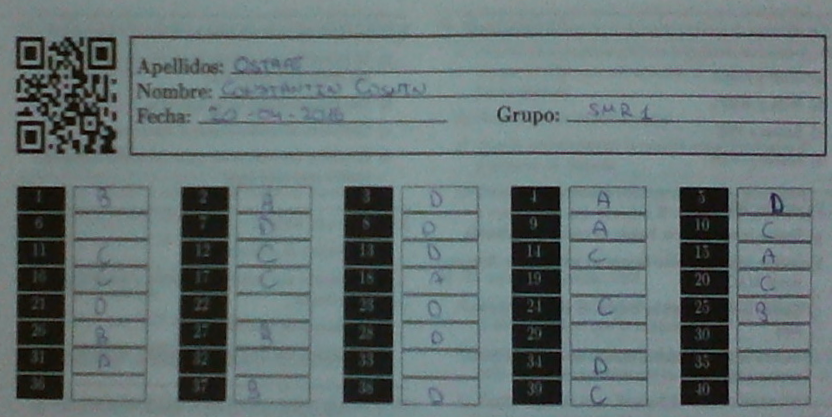 Apellidos: OSTAFE
Nombre: CONSTANTIN COSMIN
Fecha: 20-04-2016 Grupo: SMR1
1 B 2 A 3 D 4 A 5 D
6 7 D 8 D 9 A 10 C
11 C 12 C 13 D 14 C 15 A
16 C 17 C 18 A 19 20 C
21 D 22 23 D 24 C 25 B
26 B 27 B 28 D 29 30
31 D 32 33 34 D 35
36 37 B 38 D 39 C 40